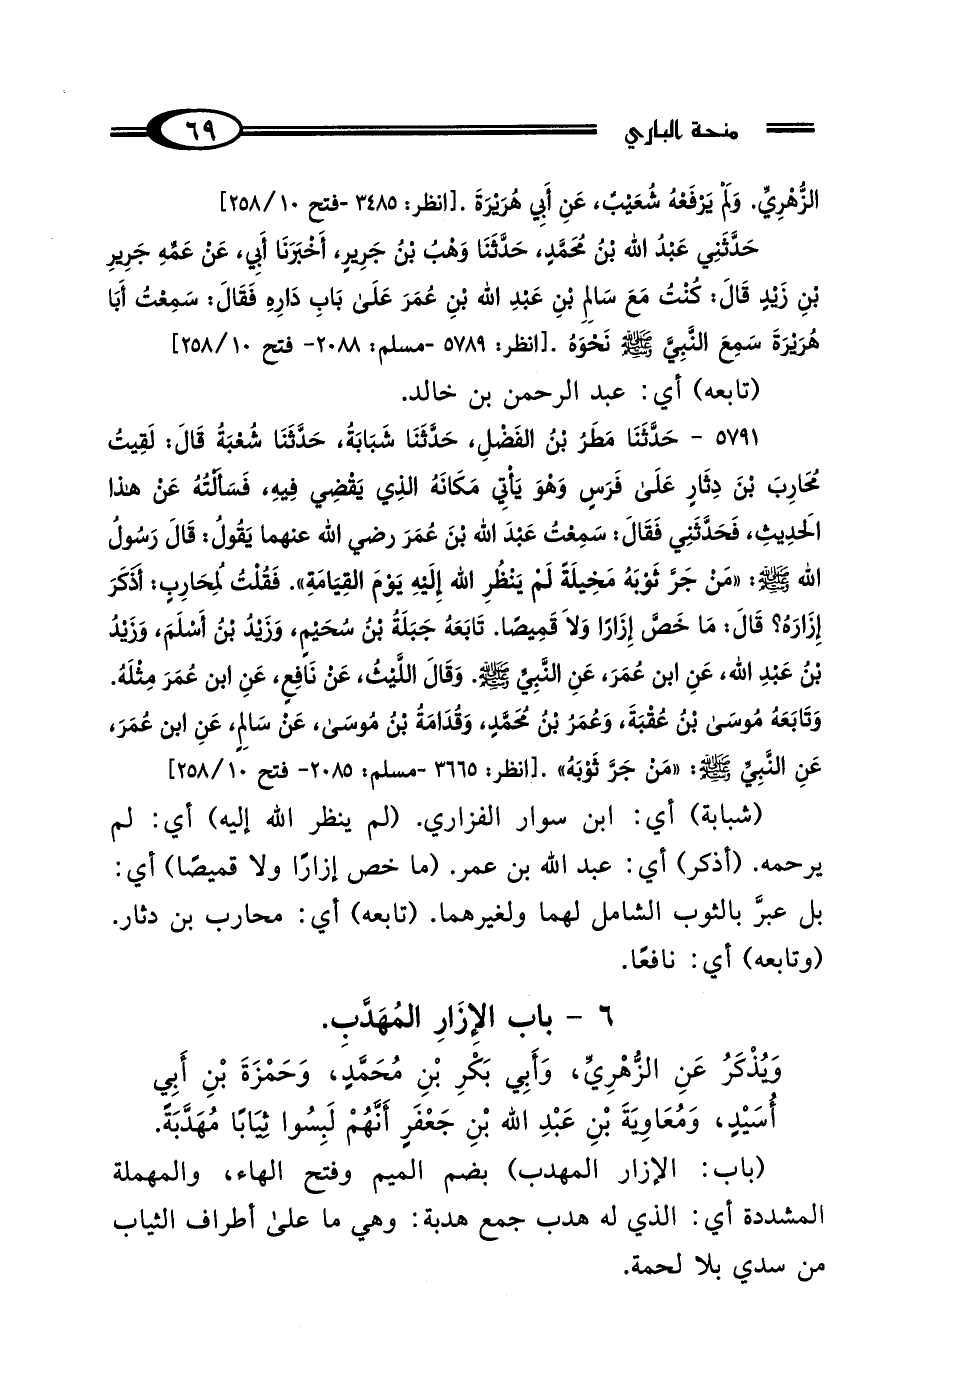 منحة الباري ٦٩
الزُّهْرِيِّ. وَلَمْ يَرْفَعْهُ شُعَيْبٌ، عَنِ أَبِي هُرَيْرَةَ .[انظر: ٣٤٨٥ -فتح ١٠/ ٢٥٨]
حَدَّثَنِي عَبْدُ الله بْنُ مُحَمَّدٍ، حَدَّثَنَا وَهْبُ بْنُ جَرِيرٍ، أَخْبَرَنَا أَبِي، عَنْ عَمِّهِ جَرِيرِ
بْنِ زَيْدٍ قَالَ: كُنْتُ مَعَ سَالِمِ بْنِ عَبْدِ الله بْنِ عُمَرَ عَلَىٰ بَابِ دَارِهِ فَقَالَ: سَمِعْتُ أَبَا
هُرَيْرَةَ سَمِعَ النَّبِيَّ ﷺ نَحْوَهُ .[انظر: ٥٧٨٩ -مسلم: ٢٠٨٨- فتح ١٠/ ٢٥٨]
(تابعه) أي: عبد الرحمن بن خالد.
٥٧٩١ - حَدَّثَنَا مَطَرُ بْنُ الفَضْلِ، حَدَّثَنَا شَبَابَةُ، حَدَّثَنَا شُعْبَةُ قَالَ: لَقِيتُ
مُحَارِبَ بْنَ دِثَارٍ عَلَىٰ فَرَسٍ وَهْوَ يَأْتِي مَكَانَهُ الذِي يَقْضِي فِيهِ، فَسَأَلْتُهُ عَنْ هٰذا
الَحدِيثِ، فَحَدَّثَنِي فَقَالَ: سَمِعْتُ عَبْدَ الله بْنَ عُمَرَ رضي الله عنهما يَقُولُ: قَالَ رَسُولُ
الله ﷺ: «مَنْ جَرَّ ثَوْبَهُ مَخِيلَةً لَمْ يَنْظُرِ الله إِلَيْهِ يَوْمَ القِيَامَةِ». فَقُلْتُ لُمِحَارِبٍ: أَذَكَرَ
إِزَارَهُ؟ قَالَ: مَا خَصَّ إِزَارًا وَلاَ قَمِيصًا. تَابَعَهُ جَبَلَةُ بْنُ سُحَيْمٍ، وَزَيْدُ بْنُ أَسْلَمَ، وَزَيْدُ
بْنُ عَبْدِ الله، عَنِ ابن عُمَرَ، عَنِ النَّبِيِّ ﷺ. وَقَالَ اللَّيْثُ، عَنْ نَافِعٍ، عَنِ ابن عُمَرَ مِثْلَهُ.
وَتَابَعَهُ مُوسَىٰ بْنُ عُقْبَةَ، وَعُمَرُ بْنُ مُحَمَّدٍ، وَقُدَامَةُ بْنُ مُوسَىٰ، عَنْ سَالِمٍ، عَنِ ابن عُمَرَ،
عَنِ النَّبِيِّ ﷺ: «مَنْ جَرَّ ثَوْبَهُ» .[انظر: ٣٦٦٥ -مسلم: ٢٠٨٥- فتح ١٠/ ٢٥٨]
(شبابة) أي: ابن سوار الفزاري. (لم ينظر الله إليه) أي: لم
يرحمه. (أذكر) أي: عبد الله بن عمر. (ما خص إزارًا ولا قميصًا) أي:
بل عبرَّ بالثوب الشامل لهما ولغيرهما. (تابعه) أي: محارب بن دثار.
(وتابعه) أي: نافعًا.
٦ - باب الإِزَارِ المُهَدَّبِ.
وَيُذْكَرُ عَنِ الزُّهْرِيِّ، وَأَبِي بَكْرِ بْنِ مُحَمَّدٍ، وَحَمْزَةَ بْنِ أَبِي
أُسَيْدٍ، وَمُعَاوِيَةَ بْنِ عَبْدِ الله بْنِ جَعْفَرٍ أَنَّهُمْ لَبِسُوا ثِيَابًا مُهَدَّبَةً.
(باب: الإزار المهدب) بضم الميم وفتح الهاء، والمهملة
المشددة أي: الذي له هدب جمع هدبة: وهي ما علىٰ أطراف الثياب
من سدي بلا لحمة.